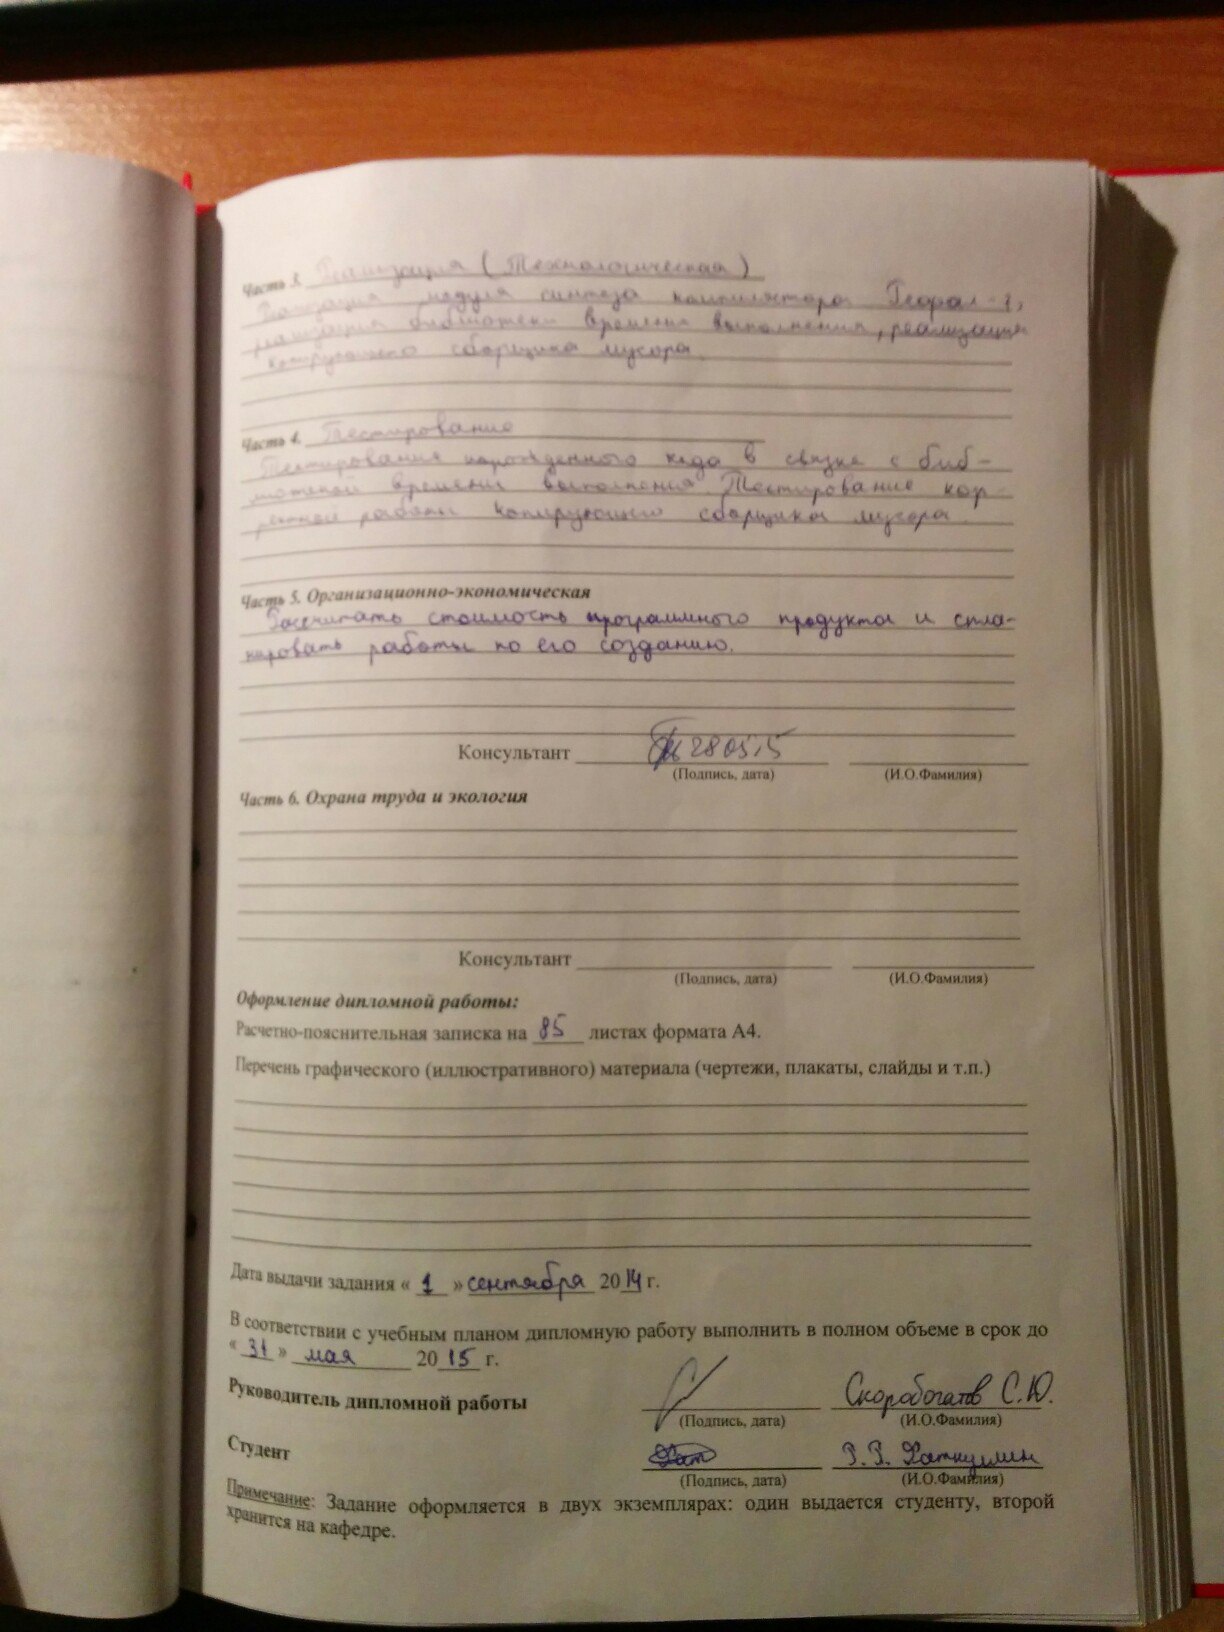 Часть 3. Реализация (Технологическая)
Реализация модуля синтеза компилятора Рефал-7,
реализация библиотеки времени выполнения, реализация
копирующего сборщика мусора.
Часть 4. Тестирование
Тестирование порождённого кода в связке с биб-
лиотекой времени выполнения. Тестирование кор-
ректной работы копирующего сборщика мусора.
Часть 5. Организационно-экономическая
Рассчитать стоимость программного продукта и спла-
нировать работы по его созданию.
Консультант 28 05 15
(Подпись, дата) (И.О.Фамилия)
Часть 6. Охрана труда и экология
Консультант
(Подпись, дата) (И.О.Фамилия)
Оформление дипломной работы:
Расчетно-пояснительная записка на 85 листах формата А4.
Перечень графического (иллюстративного) материала (чертежи, плакаты, слайды и т.п.)
Дата выдачи задания « 1 » сентября 2014 г.
В соответствии с учебным планом дипломную работу выполнить в полном объеме в срок до
« 31 » мая 2015 г.
Руководитель дипломной работы Скоробогатов С.Ю.
(Подпись, дата) (И.О.Фамилия)
Студент Хаткуллин
(Подпись, дата) (И.О.Фамилия)
Примечание: Задание оформляется в двух экземплярах: один выдается студенту, второй
хранится на кафедре.